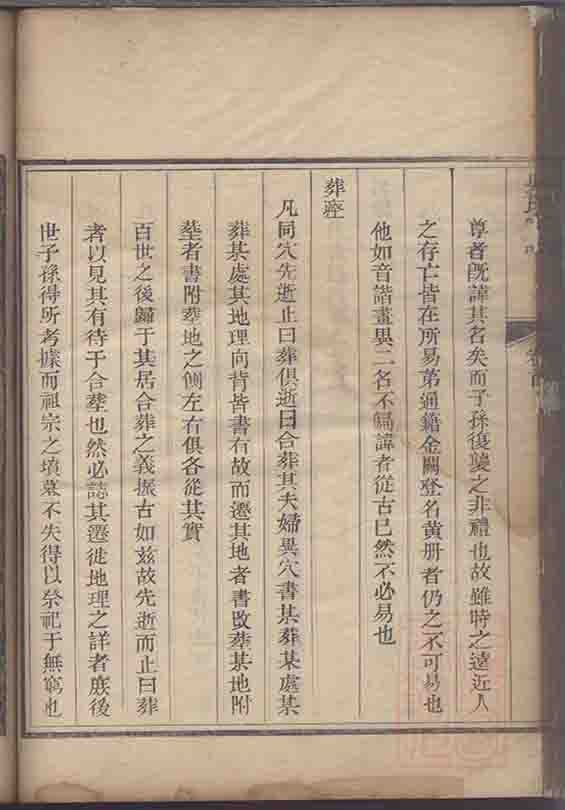 尊者既諱其名矣而子孫復襲之非禮也故雖時之遠近人
之存亡皆在所易第通籍金閨登名黄册者仍之不可易也
他如音諧畫異二名不徧諱者從古已然不必易也
葬塟
凡同穴先逝止曰葬俱逝曰合葬其夫婦異穴書某葬某處某
葬某處其地理向背皆書右故而遷其地者書改葬某地附
塋者書附塋地之側左右俱各從其實
百世之後歸于其居合葬之義振古如兹故先逝而止曰葬
者以見其有待于合塟也然必誌其遷徙地理之詳者庶後
世子孫得所考據而祖宗之墳墓不失得以祭祀于無窮也